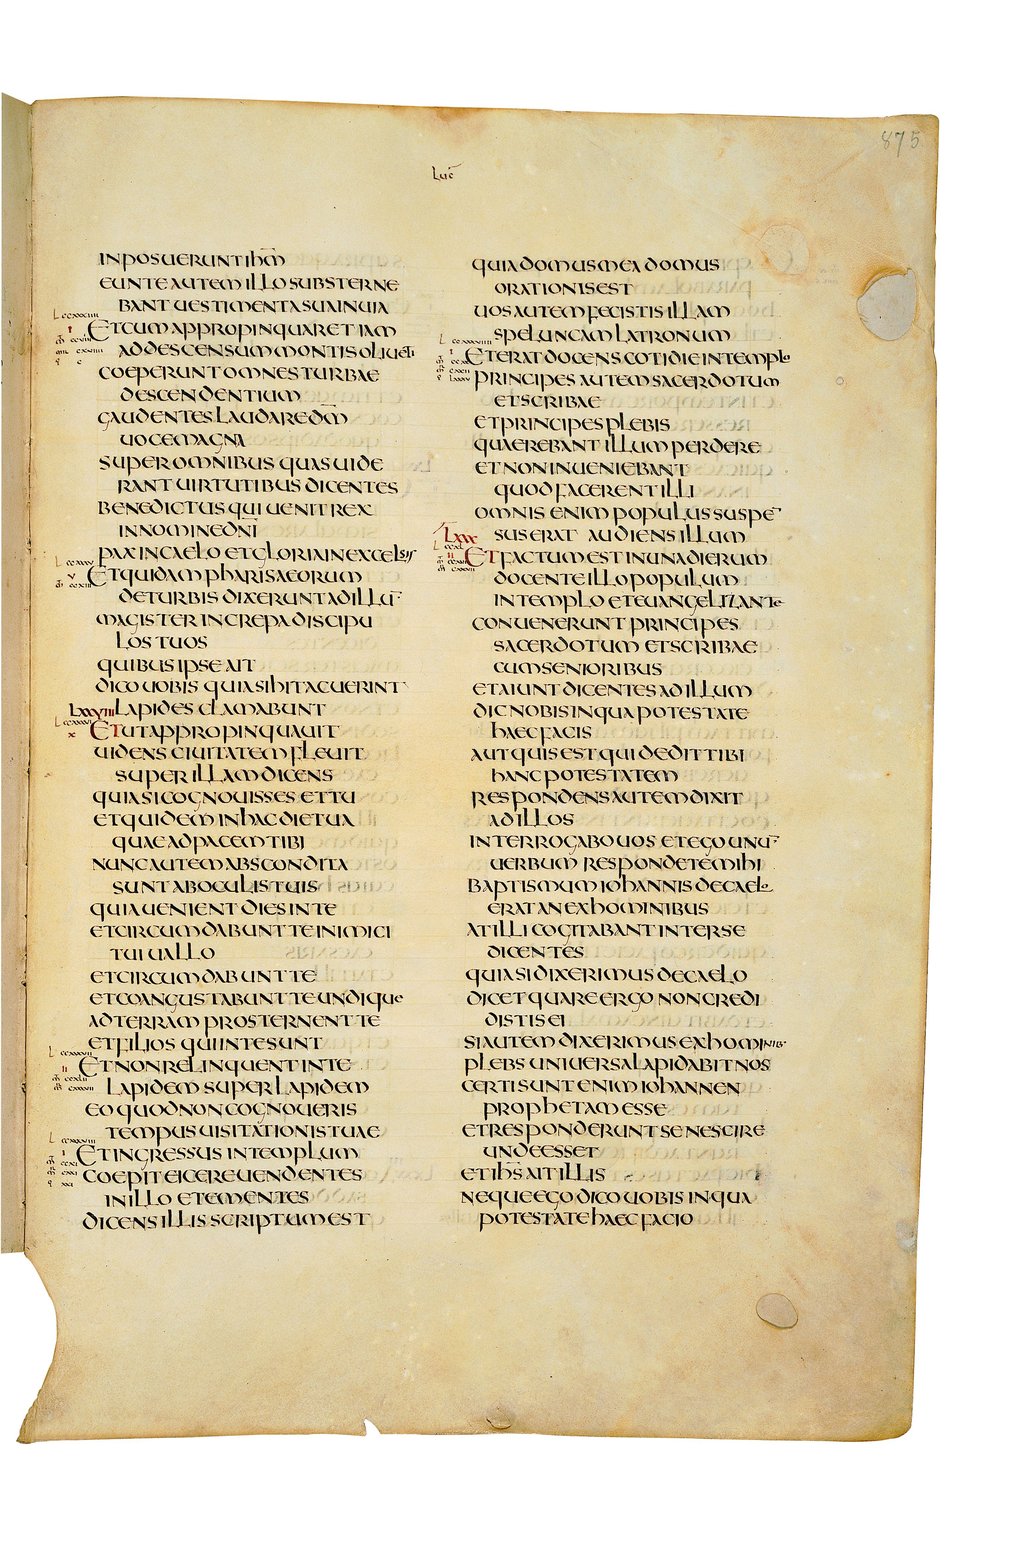 875
Luc̄
INPOSUERUNT IHM̅
EUNTE AUTEM ILLO SUBSTERNE
BANT UESTIMENTA SUA IN UIA
ET CUM APPROPINQUARET IAM
AD DESCENSUM MONTIS OLIUETI
COEPERUNT OMNES TURBAE
DESCENDENTIUM
GAUDENTES LAUDARE DM̅
UOCE MAGNA
SUPER OMNIBUS QUAS UIDE
RANT UIRTUTIBUS DICENTES
BENEDICTUS QUI UENIT REX
IN NOMINE DNI̅
PAX IN CAELO ET GLORIA IN EXCELSIS
ET QUIDAM PHARISAEORUM
DE TURBIS DIXERUNT AD ILLU̅
MAGISTER INCREPA DISCIPU
LOS TUOS
QUIBUS IPSE AIT
DICO UOBIS QUIA SI HI TACUERINT
LXXVIII LAPIDES CLAMABUNT
ET UT APPROPINQUAUIT
UIDENS CIUITATEM FLEUIT
SUPER ILLAM DICENS
QUIA SI COGNOUISSES ET TU
ET QUIDEM IN HAC DIE TUA
QUAE AD PACEM TIBI
NUNC AUTEM ABSCONDITA
SUNT AB OCULIS TUIS
QUIA UENIENT DIES IN TE
ET CIRCUMDABUNT TE INIMICI
TUI UALLO
ET CIRCUMDABUNT TE
ET COANGUSTABUNT TE UNDIQUE
AD TERRAM PROSTERNENT TE
ET FILIOS QUI IN TE SUNT
ET NON RELINQUENT IN TE
LAPIDEM SUPER LAPIDEM
EO QUOD NON COGNOUERIS
TEMPUS UISITATIONIS TUAE
ET INGRESSUS IN TEMPLUM
COEPIT EICERE UENDENTES
IN ILLO ET EMENTES
DICENS ILLIS SCRIPTUM EST
QUIA DOMUS MEA DOMUS
ORATIONIS EST
UOS AUTEM FECISTIS ILLAM
SPELUNCAM LATRONUM
ET ERAT DOCENS COTIDIE IN TEMPLO
PRINCIPES AUTEM SACERDOTUM
ET SCRIBAE
ET PRINCIPES PLEBIS
QUAEREBANT ILLUM PERDERE
ET NON INUENIEBANT
QUOD FACERENT ILLI
OMNIS ENIM POPULUS SUSPE̅
LXXX SUS ERAT AUDIENS ILLUM
ET FACTUM EST IN UNA DIERUM
DOCENTE ILLO POPULUM
IN TEMPLO ET EUANGELIZANTE
CONUENERUNT PRINCIPES
SACERDOTUM ET SCRIBAE
CUM SENIORIBUS
ET AIUNT DICENTES AD ILLUM
DIC NOBIS IN QUA POTESTATE
HAEC FACIS
AUT QUIS EST QUI DEDIT TIBI
HANC POTESTATEM
RESPONDENS AUTEM DIXIT
AD ILLOS
INTERROGABO UOS ET EGO UNU̅
UERBUM RESPONDETE MIHI
BAPTISMUM IOHANNIS DE CAELO
ERAT AN EX HOMINIBUS
AT ILLI COGITABANT INTER SE
DICENTES
QUIA SI DIXERIMUS DE CAELO
DICET QUARE ERGO NON CREDI
DISTIS EI
SI AUTEM DIXERIMUS EX HOMINIB·
PLEBS UNIUERSA LAPIDABIT NOS
CERTI SUNT ENIM IOHANNEN
PROPHETAM ESSE
ET RESPONDERUNT SE NESCIRE
UNDE ESSET
ET IHS̅ AIT ILLIS
NEQUE EGO DICO UOBIS IN QUA
POTESTATE HAEC FACIO